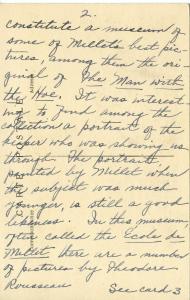 2.
constitute a museum of
some of Millets best pic-
tures, among them the ori-
ginal of The Man with
the Hoe. It was interest
ing to find among the
collection a portrait of the
keeper who was showing us
through. The portrait,
painted by Millet when
the subject was much
younger, is still a good
likeness. In this museum,
often called the Ecole de
Millet there are a number
of pictures by Theodore
Rousseau
See card 3